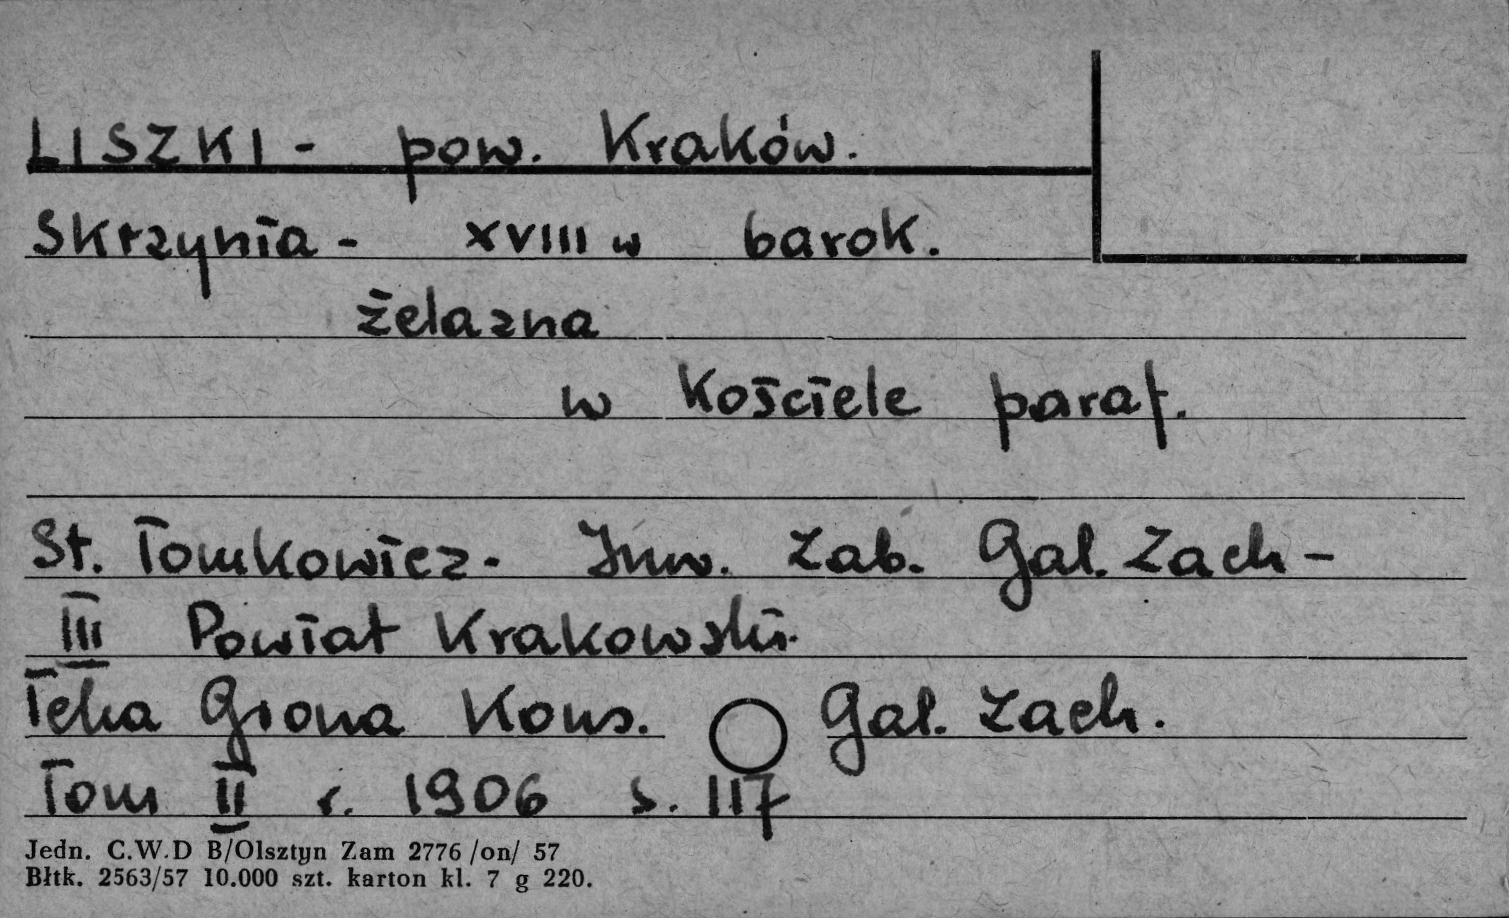 LISZKI - pow. Kraków.
Skrzynia - XVIII w barok.
żelazna
w Kościele paraf.
St. Tomkowicz. Inw. Zab. Gal. Zach -
III Powiat Krakowski.
Teka Grona Kons. Gal. Zach.
Tom II r. 1906 s. 117
Jedn. C.W.D B/Olsztyn Zam 2776 /on/ 57
Błtk. 2563/57 10.000 szt. karton kl. 7 g 220.